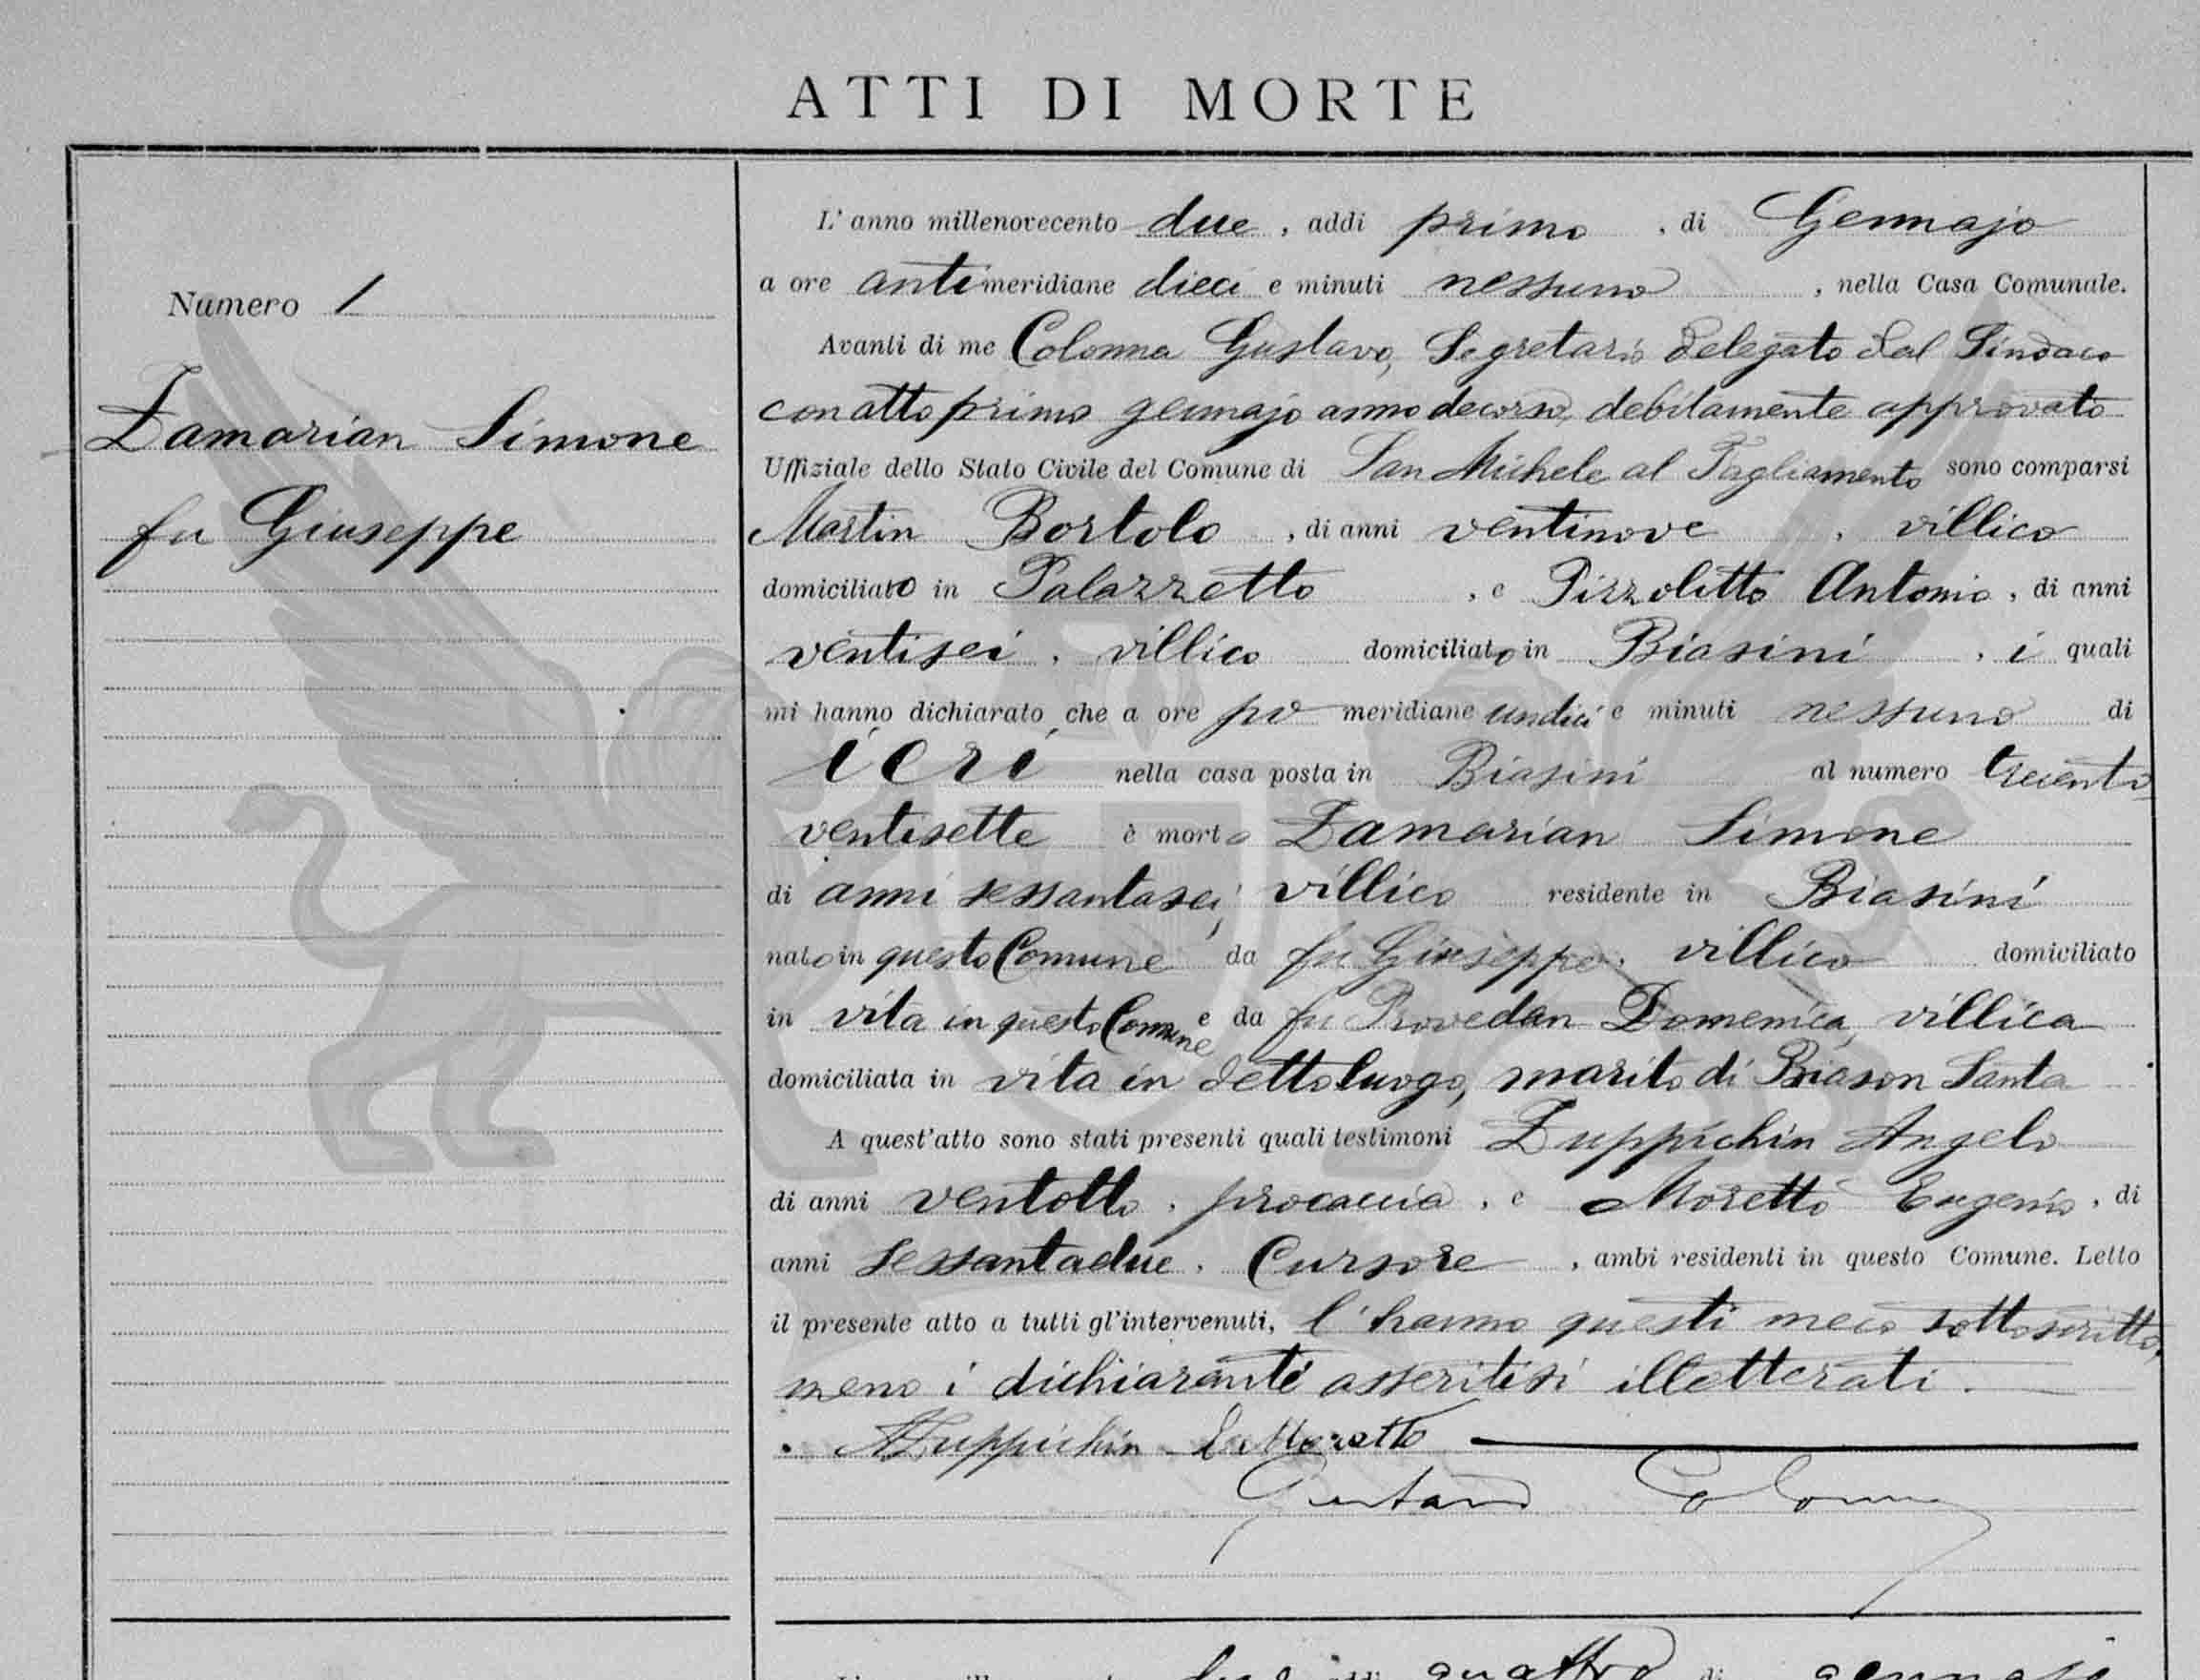 ATTI DI MORTE
Numero 1
Zamarian Simone
fu Giuseppe
L'anno millenovecento due, addi primo, di Gennajo
a ore antimeridiane dieci e minuti nessuno, nella Casa Comunale.
Avanti di me Colonna Gustavo, Segretario delegato dal Sindaco
con atto primo gennajo anno decorso, debitamente approvato
Uffiziale dello Stato Civile del Comune di San Michele al Tagliamento sono comparsi
Martin Bortolo, di anni ventinove, villico
domiciliato in Palazzetto, e Pizzolitto Antonio, di anni
ventisei, villico domiciliato in Biasini, i quali
mi hanno dichiarato che a ore po meridiane undici e minuti nessuno di
ieri nella casa posta in Biasini al numero trecento
ventisette è morto Zamarian Simone
di anni sessantasei, villico residente in Biasini
nato in questo Comune da fu Giuseppe, villico domiciliato
in vita in questo Comune e da fu Provedan Domenica, villica
domiciliata in vita in detto luogo, marito di Biason Santa
A quest'atto sono stati presenti quali testimoni Zuppichin Angelo
di anni ventotto, procaccia, e Moretto Eugenio, di
anni sessantadue, Cursore, ambi residenti in questo Comune. Letto
il presente atto a tutti gl'intervenuti, l'hanno questi meco sottoscritto,
meno i dichiaranti asseritisi illetterati.
A Zuppichin E. Moretto
Gustavo Colonna
due addi quattro di gennajo